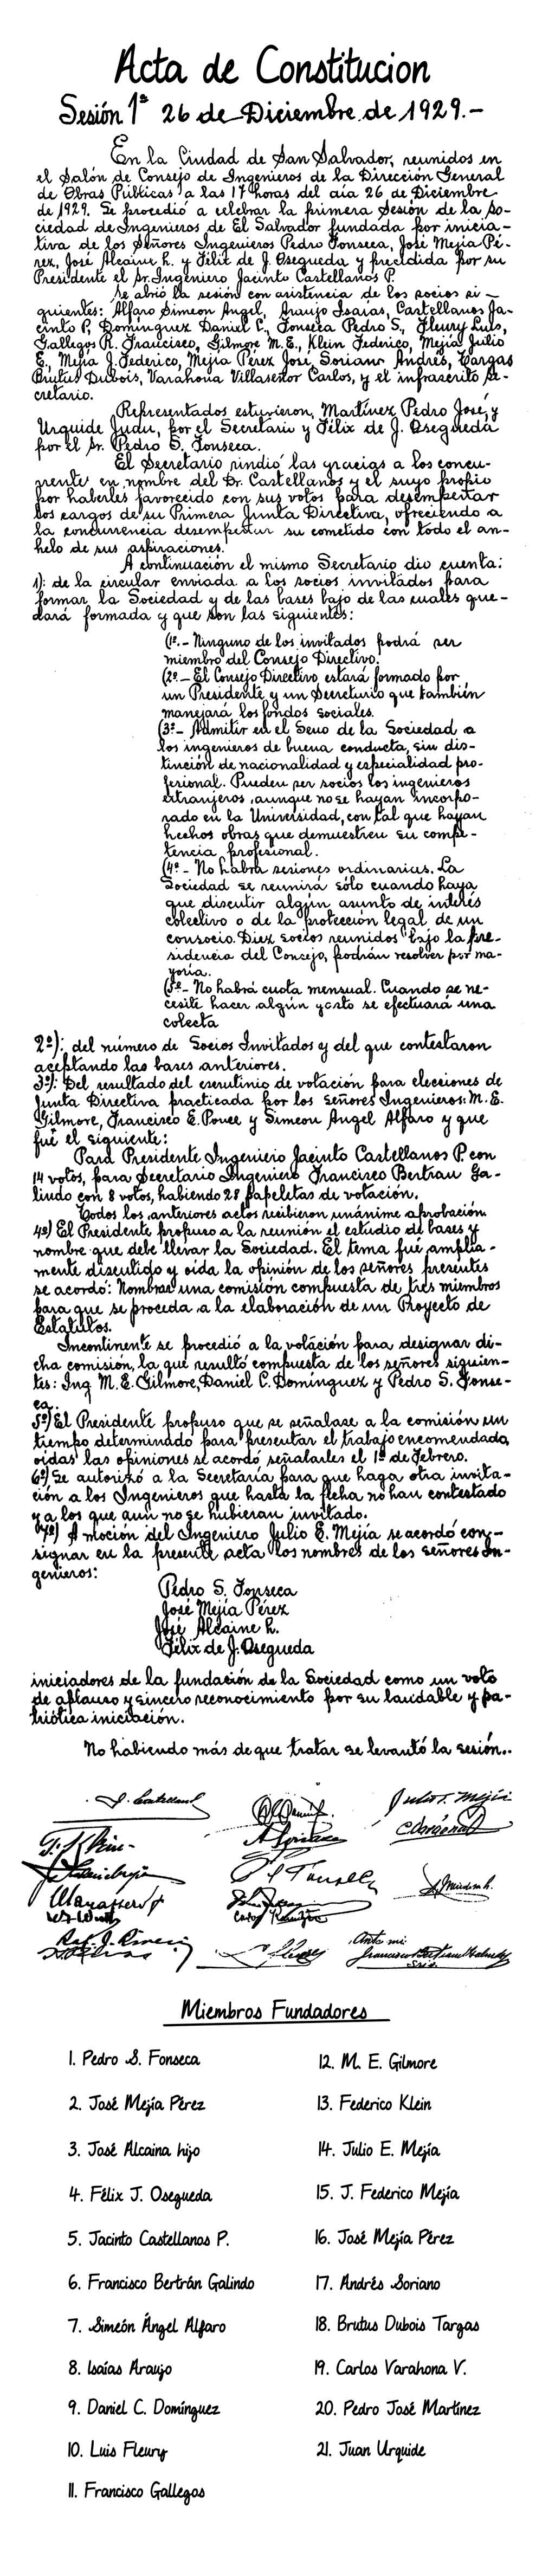 Acta de Constitucion
Sesión 1ª 26 de Diciembre de 1929.-
En la Ciudad de San Salvador, reunidos en
el Salón de Consejo de Ingenieros de la Dirección General
de Obras Públicas a las 17 horas del día 26 de Diciembre
de 1929. Se procedió a celebrar la primera Sesión de la So-
ciedad de Ingenieros de El Salvador fundada por inicia-
tiva de los Señores Ingenieros Pedro Fonseca, José Mejía Pé-
rez, José Alcaine h. y Félix de J. Osegueda y precidida por su
Presidente el Sr. Ingeniero Jacinto Castellanos P.
Se abrió la sesión con asistencia de los socios si-
guientes: Alfaro Simeon Angel, Araujo Isaías, Castellanos Ja-
cinto P, Dominguez Daniel C., Fonseca Pedro S, Fleury Luis,
Gallegos R. Francisco, Gilmore M. E., Klein Federico, Mejía Julio
E., Mejía J. Federico, Mejía Pérez José, Soriano Andrés, Targas
Brutus Dubois, Varahona Villaseñor Carlos, y el infrascrito se-
cretario.
Representados estuvieron, Martínez Pedro José, y
Urquide Juan, por el Secretario y Félix de J. Osegueda
por el Sr. Pedro S. Fonseca.
El Secretario rindió las gracias a los concu-
rrente en nombre del Dr. Castellanos y el suyo propio
por haberles favorecido con sus votos para desempeñar
los cargos de su Primera Junta Directiva, ofreciendo a
la concurrencia desempeñar su cometido con todo el an-
helo de sus aspiraciones.
A continuación el mismo Secretario dio cuenta:
1): de la circular enviada a los socios invitados para
formar la Sociedad y de las bases bajo de las cuales que-
dará formada y que son las siguientes:
(1º.- Ninguno de los invitados podrá ser
miembro del Consejo Directivo.
(2º- El Consejo Directivo estará formado por
un Presidente y un Secretario que también
manejará los fondos sociales.
(3º- Admitir en el Seno de la Sociedad a
los ingenieros de buena conducta, sin dis-
tinción de nacionalidad y especialidad pro-
fesional. Pueden ser socios los ingenieros
extranjeros aunque no se hayan incorpo-
rado en la Universidad, con tal que hayan
hechos obras que demuestren su compe-
tencia profesional.
(4º- No habrá sesiones ordinarias. La
Sociedad se reunirá sólo cuando haya
que discutir algún asunto de interés
colectivo o de la protección legal de un
consocio. Diez socios reunidos bajo la pre-
sidencia del Concejo, podrán resolver por ma-
yoría.
(5º- No habrá cuota mensual. Cuando se ne-
cesite hacer algún gasto se efectuará una
colecta
2º): del número de Socios Invitados y del que contestaron
aceptando las bases anteriores.
3º): Del resultado del escrutinio de votación para elecciones de
Junta Directiva practicada por los señores Ingenieros: M. E.
Gilmore, Francisco E. Ponce y Simeon Angel Alfaro y que
fué el siguiente:
Para Presidente Ingeniero Jacinto Castellanos P. con
14 votos, para Secretario Ingeniero Francisco Bertran Ga-
lindo con 8 votos, habiendo 28 papeletas de votación.
Todos los anteriores actos recibieron unánime aprobación.
4º) El Presidente propuso a la reunión el estudio de bases y
nombre que debe llevar la Sociedad. El tema fué amplia-
mente discutido y oída la opinión de los señores presentes
se acordó: Nombrar una comisión compuesta de tres miembros
para que se proceda a la elaboración de un Proyecto de
Estatutos.
Incontinente se procedió a la votación para designar di-
cha comisión, la que resultó compuesta de los señores siguien-
tes: Ing M. E. Gilmore, Daniel C. Domínguez y Pedro S. Fonse-
ca.
5º) El Presidente propuso que se señalase a la comisión un
tiempo determinado para presentar el trabajo encomendado,
oídas las opiniones se acordó señalarles el 1º de Febrero.
6º) Se autorizó a la Secretaría para que haga otra invita-
ción a los Ingenieros que hasta la fecha no han contestado
y a los que aun no se hubieran invitado.
7º) A moción del Ingeniero Julio E. Mejía se acordó con-
signar en la presente acta los nombres de los señores In-
genieros:
Pedro S. Fonseca
José Mejía Pérez
José Alcaine h.
Félix de J. Osegueda
iniciadores de la fundación de la Sociedad como un voto
de aplauso y sincero reconocimiento por su laudable y pa-
triótica iniciación.
No habiendo más de que tratar se levantó la sesión..
J. Castellanos
Julio E. Mejía
P. S. Fonseca
Ante mi
Srio
Miembros Fundadores
1. Pedro S. Fonseca
2. José Mejía Pérez
3. José Alcaina hijo
4. Félix J. Osegueda
5. Jacinto Castellanos P.
6. Francisco Bertrán Galindo
7. Simeón Ángel Alfaro
8. Isaías Araujo
9. Daniel C. Domínguez
10. Luis Fleury
11. Francisco Gallegos
12. M. E. Gilmore
13. Federico Klein
14. Julio E. Mejía
15. J. Federico Mejía
16. José Mejía Pérez
17. Andrés Soriano
18. Brutus Dubois Targas
19. Carlos Varahona V.
20. Pedro José Martínez
21. Juan Urquide